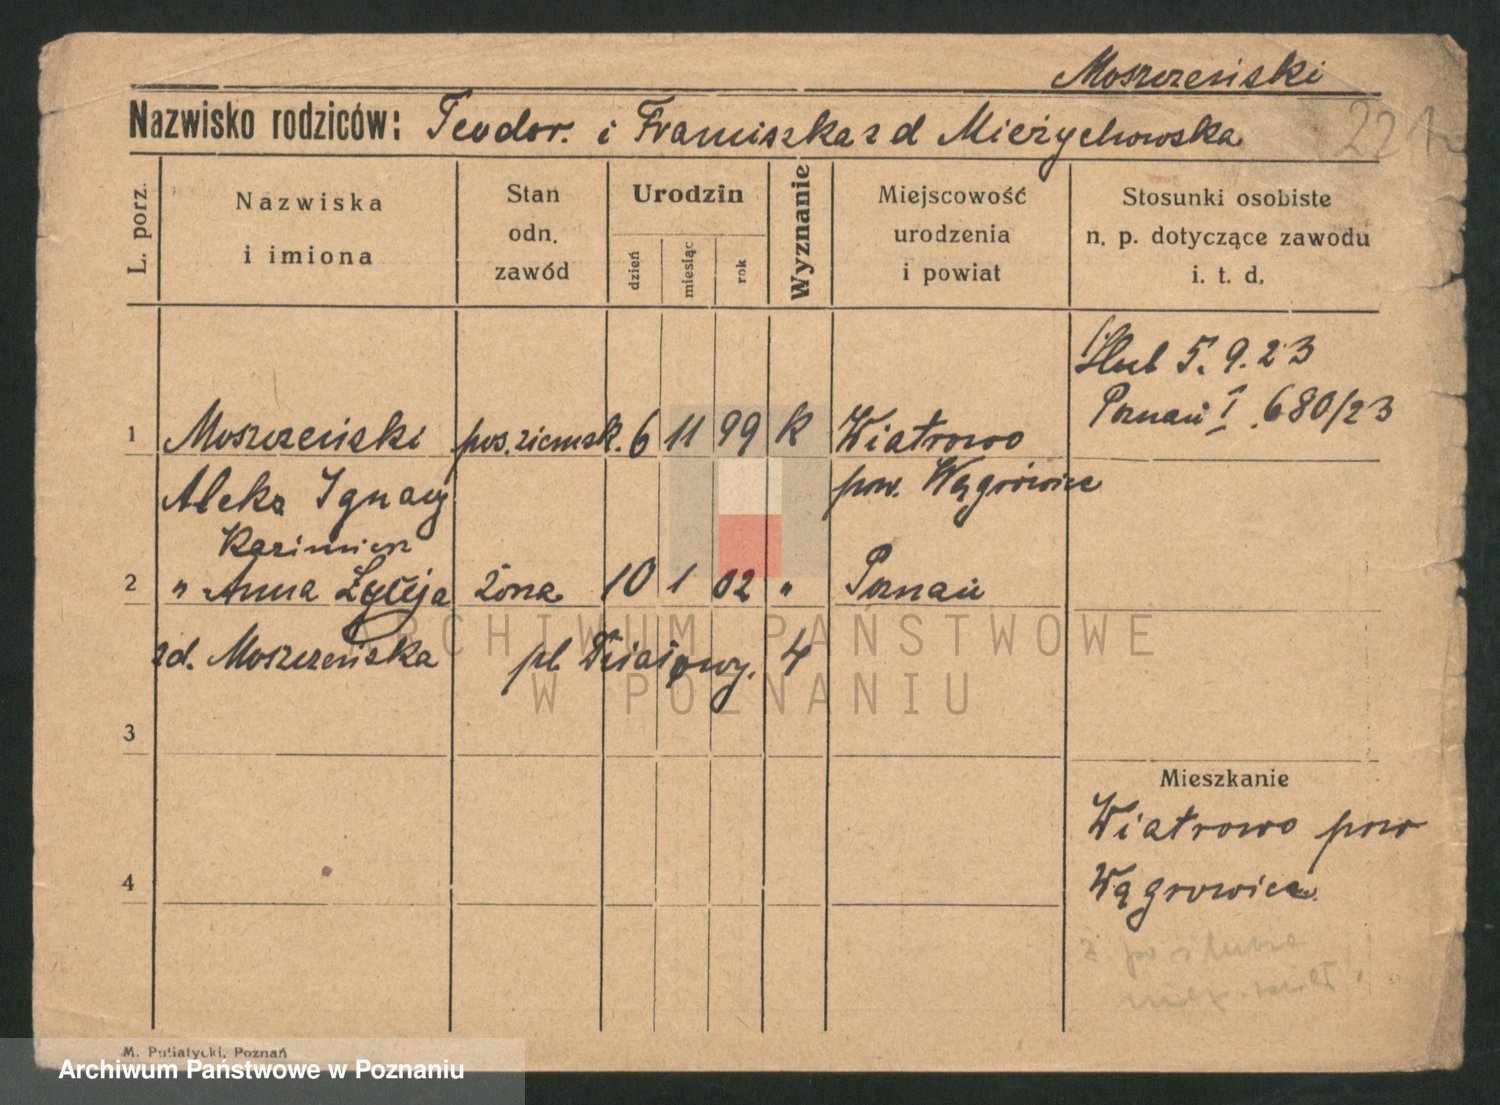 Moszczeński
Nazwisko rodziców: Teodor. i Franciszka z d Mierzychowska
L. porz.
Nazwiska
i imiona
Stan
odn.
zawód
Urodzin
dzień
miesiąc
rok
Wyznanie
Miejscowość
urodzenia
i powiat
Stosunki osobiste
n. p. dotyczące zawodu
i. t. d.
Ślub 5. 9. 23
Poznań I. 680/23
1 Moszczeński pos. ziemsk. 6 11 99 K Wiatrowo
Aleks Ignacy pow. Wągrowiec
Kazimierz
2 " Anna Łucja żona 10 1 02 " Poznań
zd. Moszczeńska pl. Działowy. 4
3
Mieszkanie
Wiatrowo pow
4 Wągrowiec.
ż. po ślubie
M. Putiatycki, Poznań
ARCHIWUM PAŃSTWOWE
W POZNANIU
Archiwum Państwowe w Poznaniu